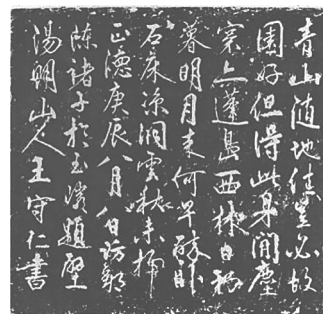 青山随地佳豈必故
園好但得此身閒塵
寰亦蓬島西林日初
暮明月来何早醉卧
石床凉洞雲秋未掃
正德庚辰八月八日訪鄒
陳諸子於玉巖題壁
陽明山人王守仁書